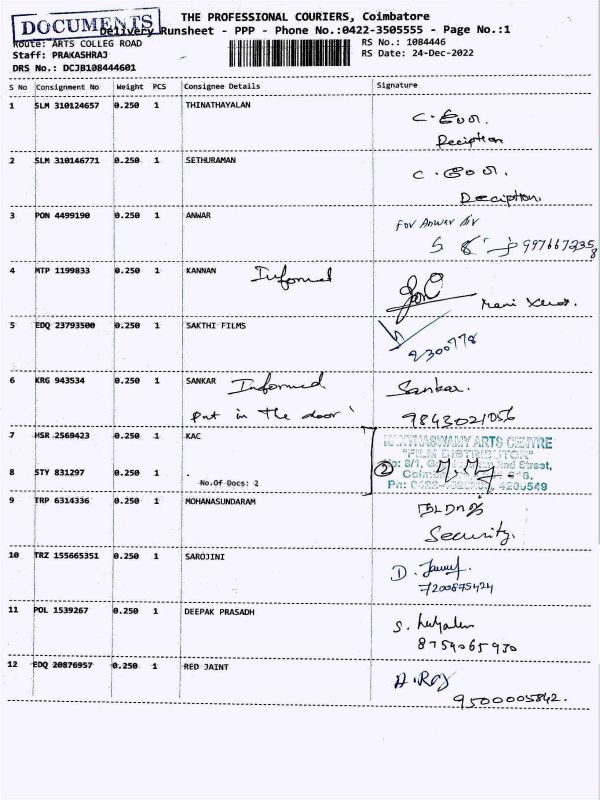 DOCUMENTS
THE PROFESSIONAL COURIERS, Coimbatore
Delivery Runsheet - PPP - Phone No.:0422-3505555 - Page No.:1
Route: ARTS COLLEG ROAD
RS No.: 1084446
Staff: PRAKASHRAJ
RS Date: 24-Dec-2022
DRS No.: DCJB108444601
S No Consignment No Weight PCS Consignee Details Signature
1 SLM 310124657 0.250 1 THINATHAYALAN
Reciption
2 SLM 310146771 0.250 1 SETHURAMAN
Reciption.
3 PON 4499190 0.250 1 ANWAR
For Anwar
4 MTP 1199833 0.250 1 KANNAN Informed
Mani Xerox.
5 EDQ 23793500 0.250 1 SAKTHI FILMS
9300778
6 KRG 943534 0.250 1 SANKAR Informed. Sankar.
Put in the door
9843021056
7 HSR 2569423 0.250 1 KAC
KANTHASWAMY ARTS CENTRE
"FILM DISTRIBUTOR"
8 STY 831297 0.250 1 .
No.Of Docs: 2
2
Street,
4230549
9 TRP 6314336 0.250 1 MOHANASUNDARAM
Security.
10 TRZ 155665351 0.250 1 SAROJINI
7200875424
11 POL 1539267 0.250 1 DEEPAK PRASADH
8754065970
12 EDQ 20876957 0.250 1 RED JAINT
A. Raj
9500005842.